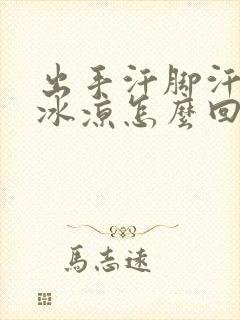 出手汗脚汗
冰凉怎麼回
馬志遠